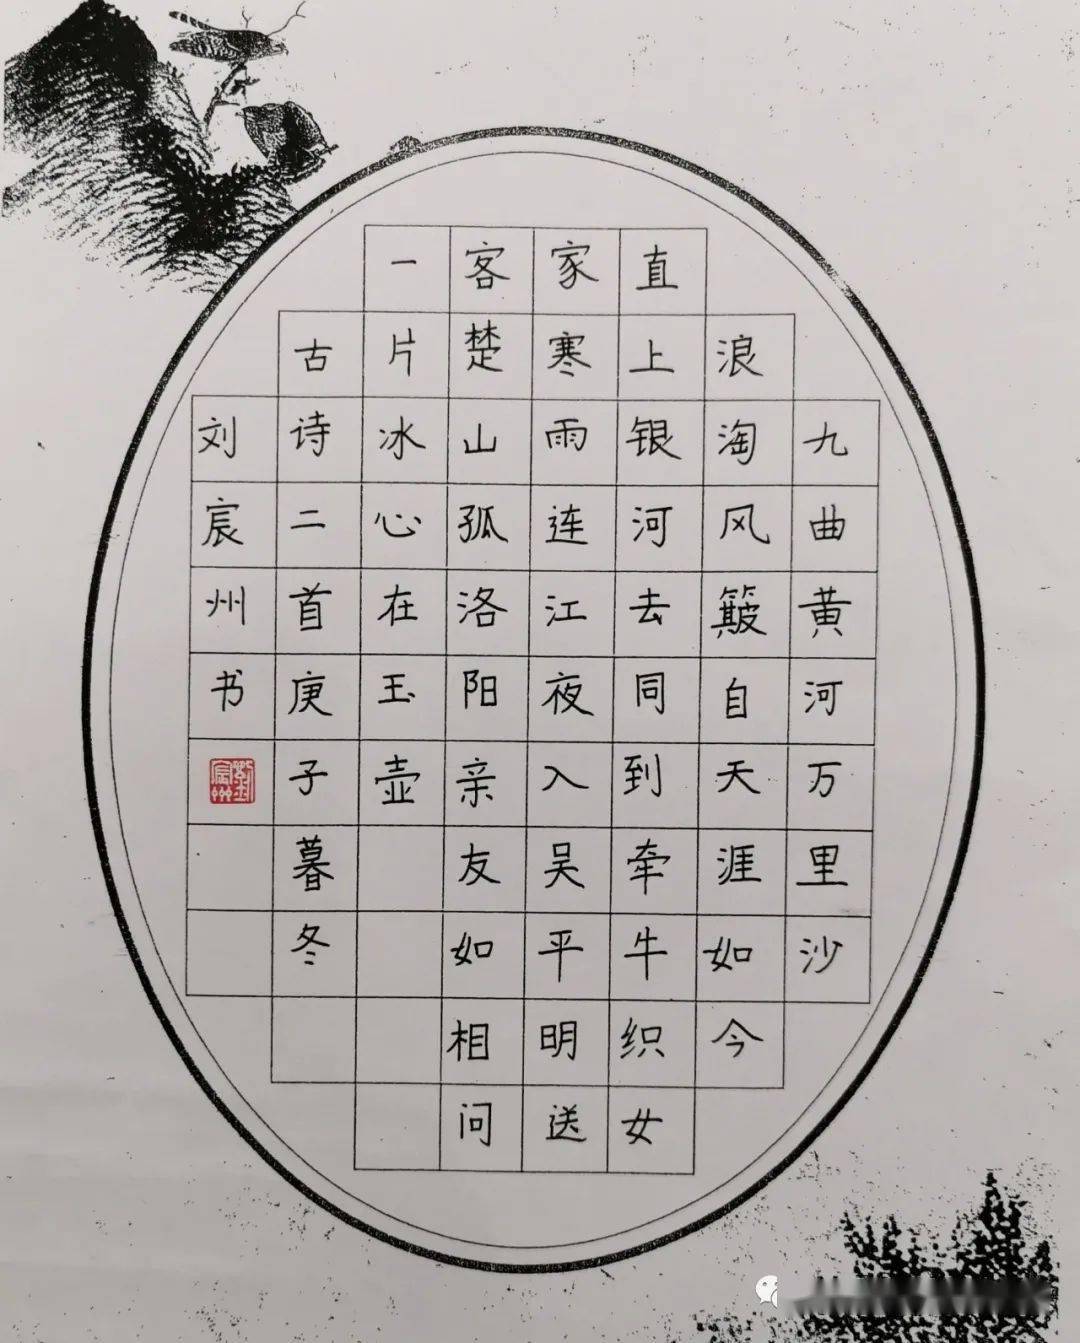 九曲黄河万里沙
浪淘风簸自天涯如今
直上银河去同到牵牛织女
家寒雨连江夜入吴平明送
客楚山孤洛阳亲友如相问
一片冰心在玉壶
古诗二首庚子暮冬
刘宸州书